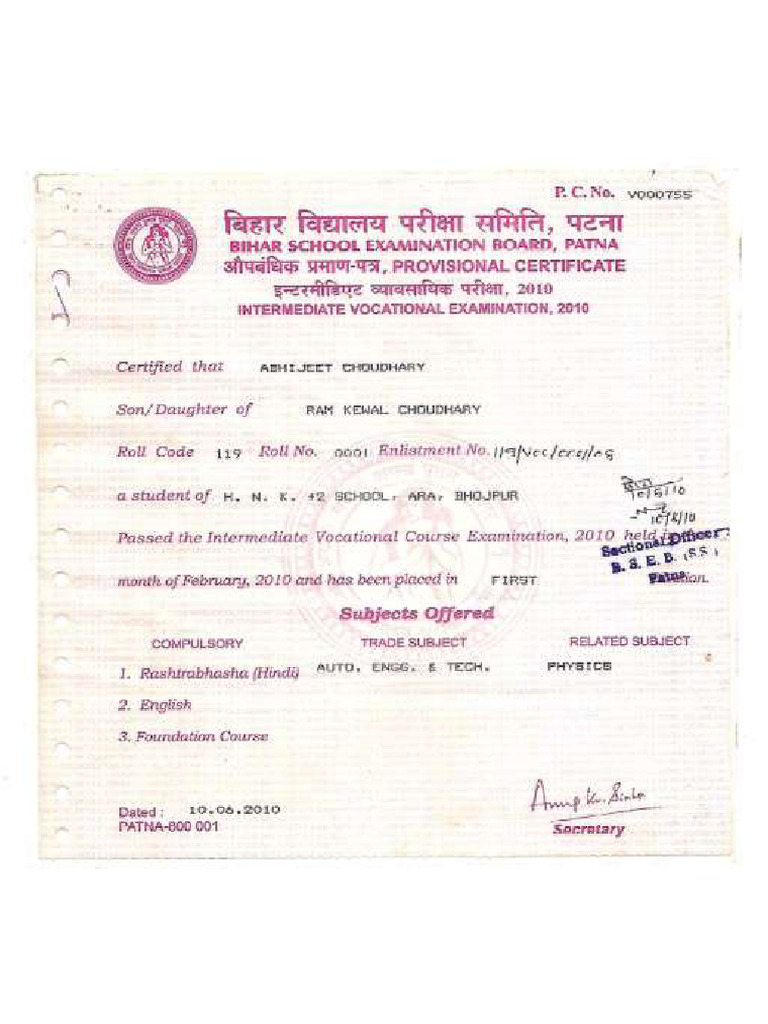 P. C. No. V000755
बिहार विद्यालय परीक्षा समिति, पटना
BIHAR SCHOOL EXAMINATION BOARD, PATNA
औपबंधिक प्रमाण-पत्र, PROVISIONAL CERTIFICATE
इन्टरमीडिएट व्यावसायिक परीक्षा, 2010
INTERMEDIATE VOCATIONAL EXAMINATION, 2010
Certified that ABHIJEET CHOUDHARY
Son/Daughter of RAM KEWAL CHOUDHARY
Roll Code 119 Roll No. 0001 Enlistment No.
a student of H. N. K. +2 SCHOOL, ARA, BHOJPUR
Passed the Intermediate Vocational Course Examination, 2010 held
Sectional Officer
B. S. E. B. (S.S.)
Patna
month of February, 2010 and has been placed in FIRST
Subjects Offered
COMPULSORY TRADE SUBJECT RELATED SUBJECT
1. Rashtrabhasha (Hindi) AUTO. ENGG. & TECH. PHYSICS
2. English
3. Foundation Course
Dated : 10.06.2010
PATNA-800 001
Secretary